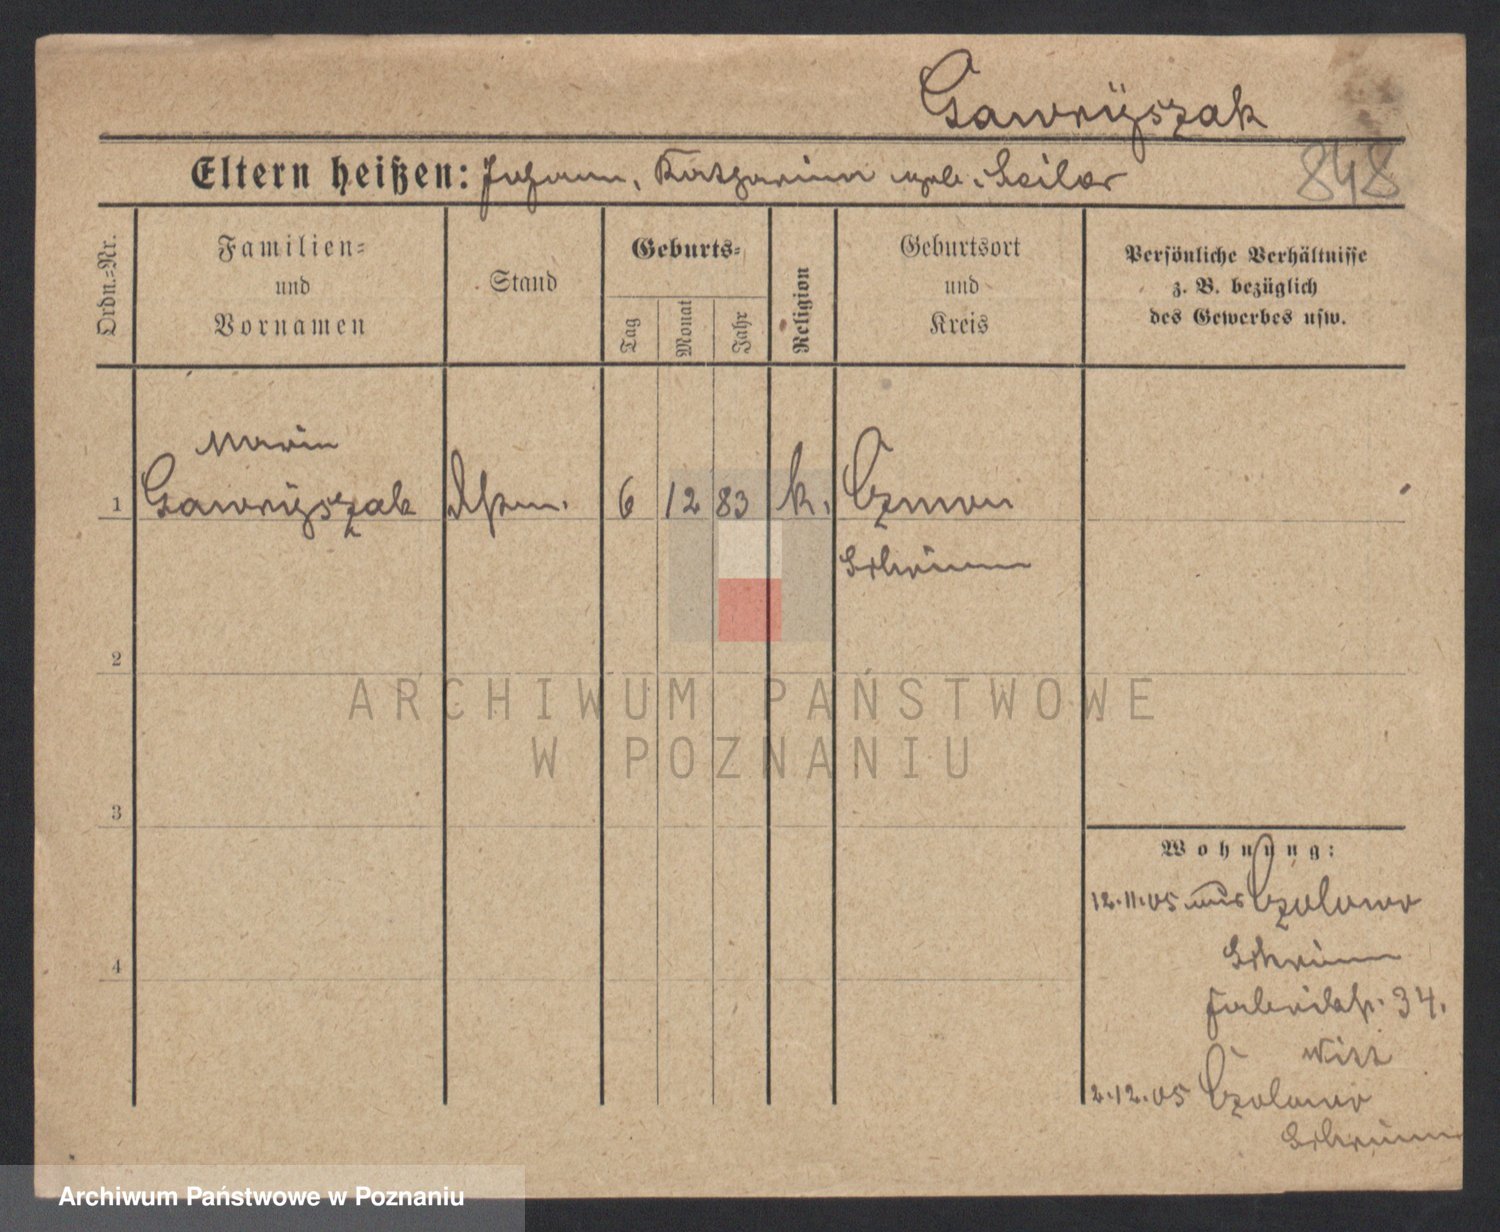 Gawryszak
Eltern heißen: Johann, Katharina geb. Seiler
848
Ordn.-Nr.
Familien-
und
Vornamen
Stand
Geburts-
Tag
Monat
Jahr
Religion
Geburtsort
und
Kreis
Persönliche Verhältnisse
z. B. bezüglich
des Gewerbes usw.
Maria
1 Gawryszak 6 12 83 k. Czmon
Schrimm
2
3
4
Wohnung:
12.11.05 aus Czolowo
Schrimm
Fabrikstr. 34.
Witt
2.12.05 Czolowo
Schrimm
ARCHIWUM PAŃSTWOWE
W POZNANIU
Archiwum Państwowe w Poznaniu